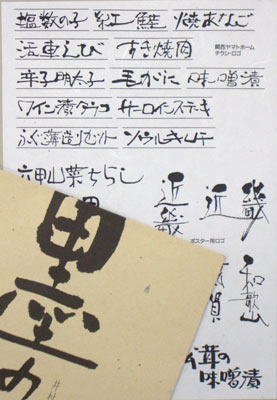 塩数の子 紅鮭 焼あなご
活車えび すき焼肉
関西ヤマトホーム
チラシ・ロゴ
辛子明太子 毛がに 味噌漬
ワイン漬タラコ サーロインステーキ
ふぐ薄造りセット ソウルキムチ
六甲山菜ちらし
近畿 近畿
ポスター用ロゴ
和歌山
賀
墨の
茸の
味噌漬